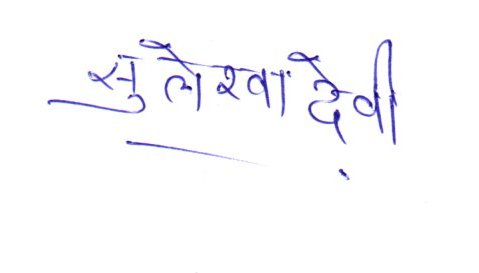 सुलेखा देवी